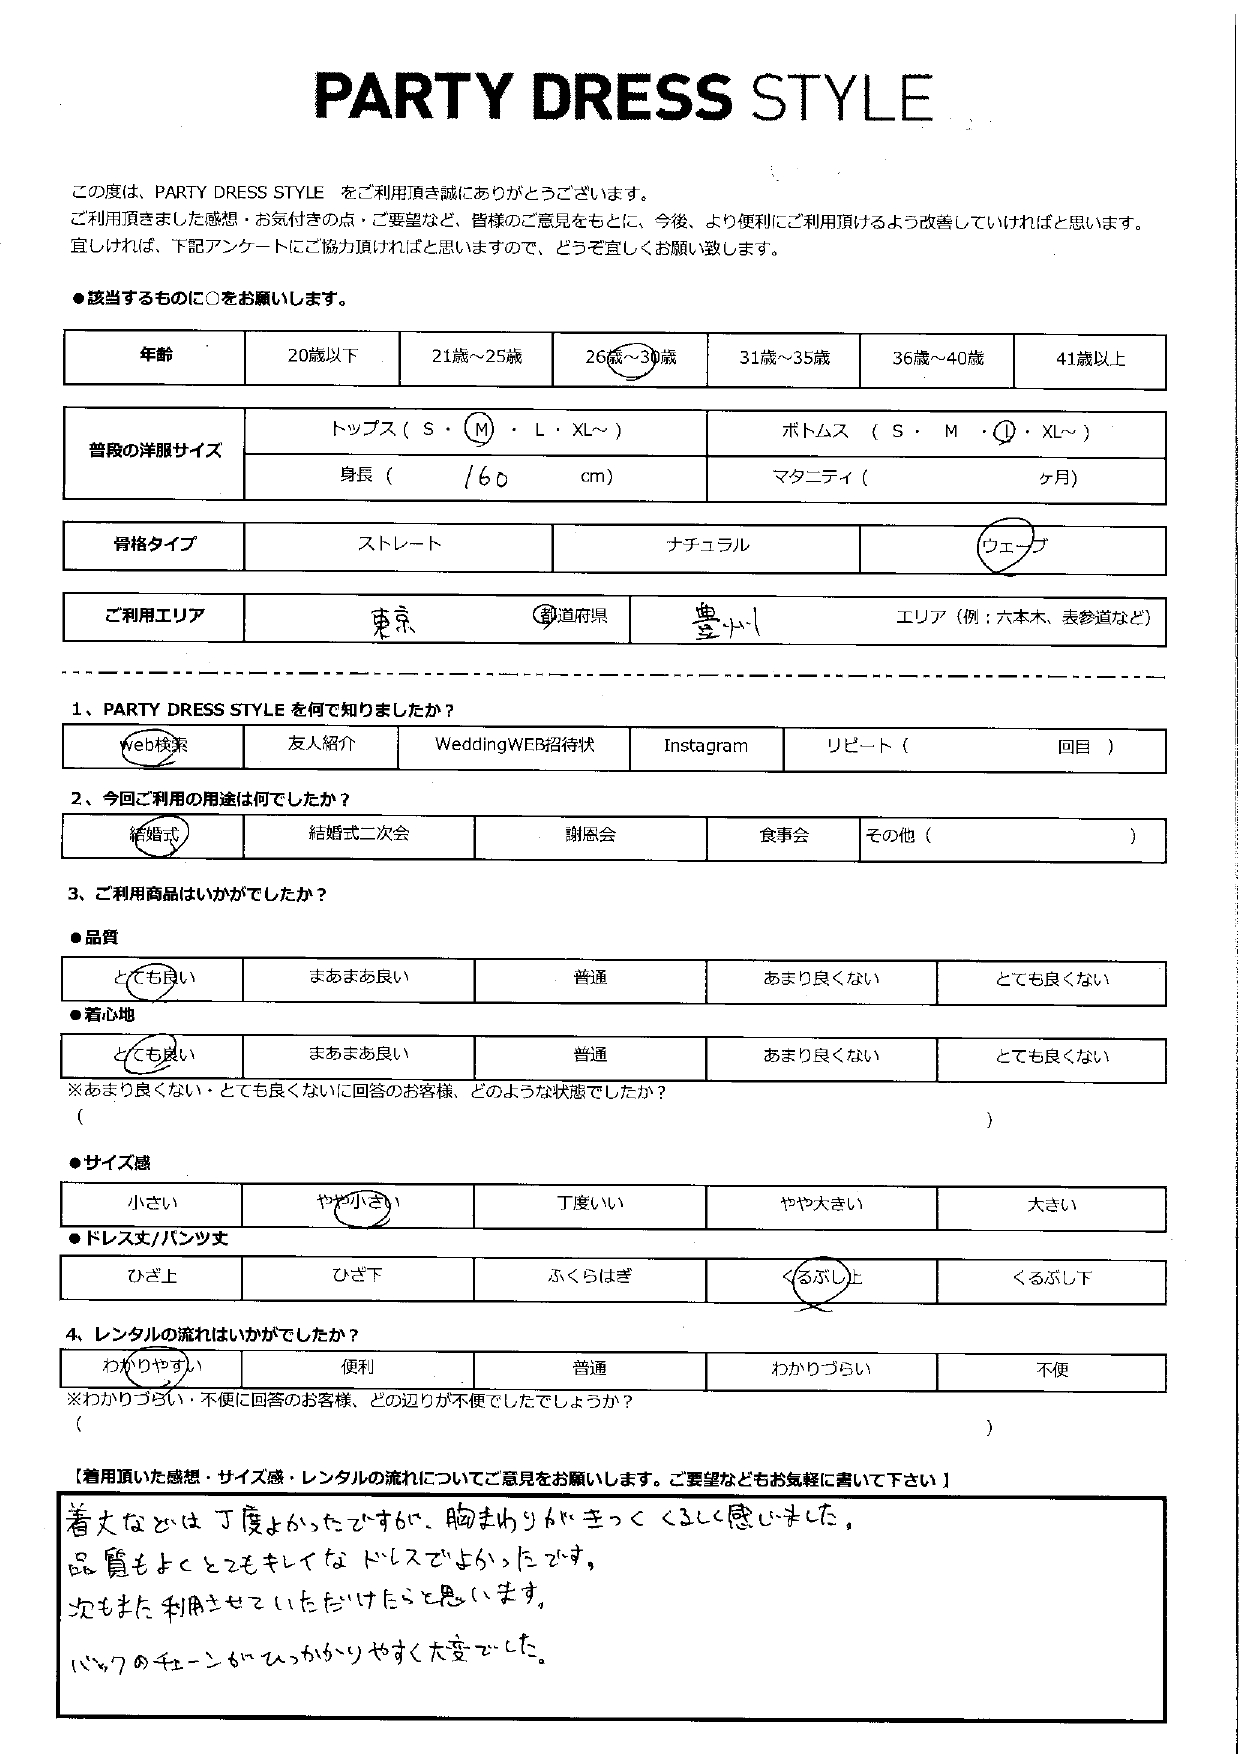 PARTY DRESS STYLE
この度は、PARTY DRESS STYLE をご利用頂き誠にありがとうございます。
ご利用頂きました感想・お気付きの点・ご要望など、皆様のご意見をもとに、今後、より便利にご利用頂けるよう改善していければと思います。
宜しければ、下記アンケートにご協力頂ければと思いますので、どうぞ宜しくお願い致します。
●該当するものに○をお願いします。
年齢 20歳以下 21歳～25歳 26歳～30歳 31歳～35歳 36歳～40歳 41歳以上
普段の洋服サイズ
トップス ( S ・ M ・ L ・ XL～ ) ボトムス ( S ・ M ・ L ・ XL～ )
身長 ( 160 cm) マタニティ ( ヶ月)
骨格タイプ ストレート ナチュラル ウェーブ
ご利用エリア 東京 都道府県 豊州 エリア（例：六本木、表参道など）
1、PARTY DRESS STYLE を何で知りましたか？
web検索 友人紹介 WeddingWEB招待状 Instagram リピート ( 回目 )
2、今回ご利用の用途は何でしたか？
結婚式 結婚式二次会 謝恩会 食事会 その他 ( )
3、ご利用商品はいかがでしたか？
●品質
とても良い まあまあ良い 普通 あまり良くない とても良くない
●着心地
とても良い まあまあ良い 普通 あまり良くない とても良くない
※あまり良くない・とても良くないに回答のお客様、どのような状態でしたか？
( )
●サイズ感
小さい やや小さい 丁度いい やや大きい 大きい
●ドレス丈/パンツ丈
ひざ上 ひざ下 ふくらはぎ くるぶし上 くるぶし下
4、レンタルの流れはいかがでしたか？
わかりやすい 便利 普通 わかりづらい 不便
※わかりづらい・不便に回答のお客様、どの辺りが不便でしたでしょうか？
( )
【着用頂いた感想・サイズ感・レンタルの流れについてご意見をお願いします。ご要望などもお気軽に書いて下さい】
着丈などは丁度よかったですが、胸まわりがきつく くるしく感じました。
品質もよくとてもキレイなドレスでよかったです。
次もまた利用させていただけたらと思います。
バックのチェーンがひっかかりやすく大変でした。